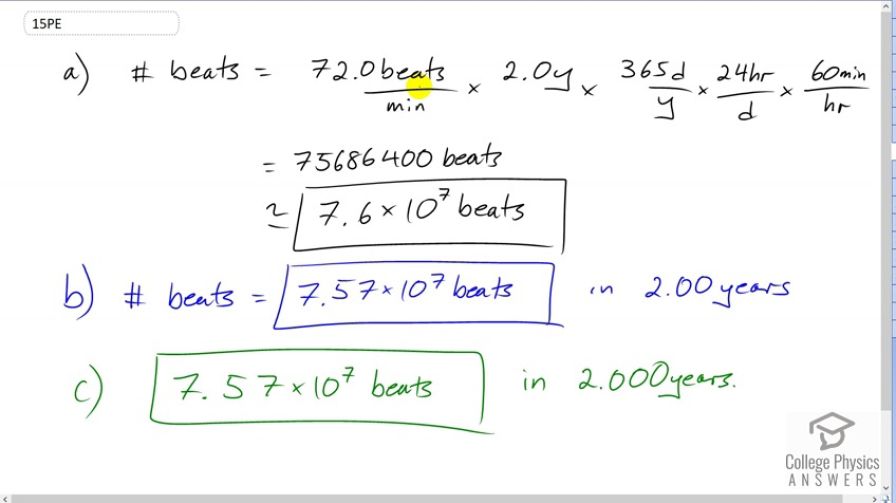 15PE
a) # beats = 72.0 beats/min × 2.0y × 365d/y × 24hr/d × 60min/hr
= 75686400 beats
≃ 7.6 × 10⁷ beats
b) # beats = 7.57 × 10⁷ beats in 2.00 years
c) 7.57 × 10⁷ beats in 2.000 years.
College Physics
ANSWERS